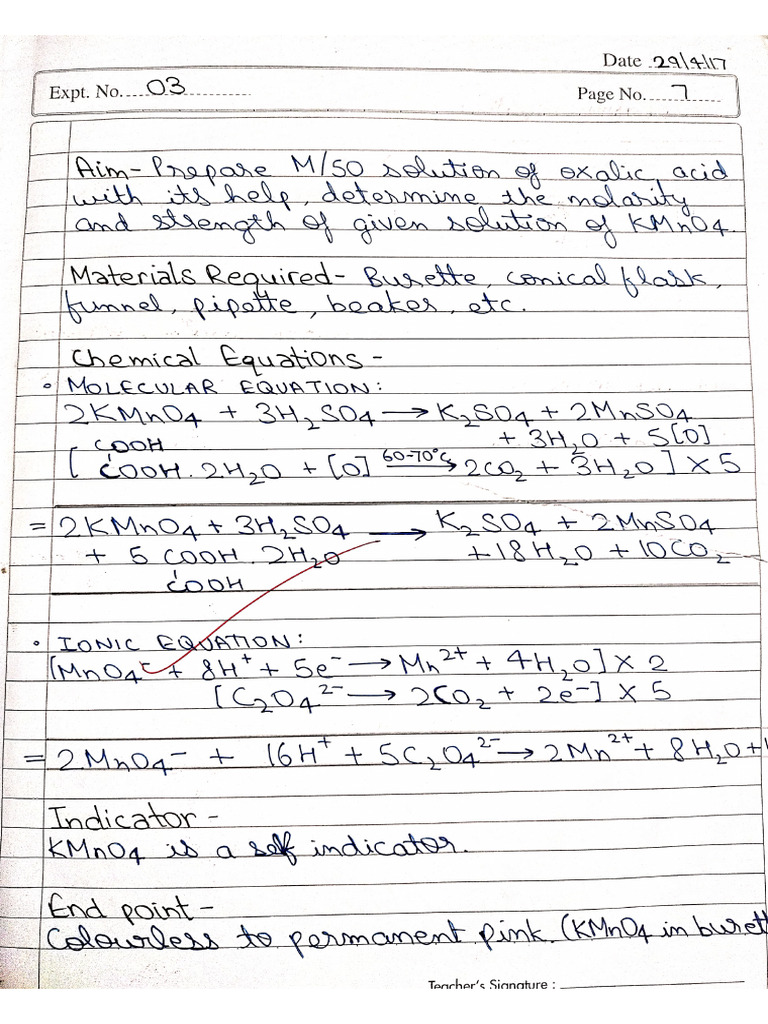 Date 29/4/17
Expt. No. 03 Page No. 7
Aim- Prepare M/50 solution of oxalic acid
with its help, determine the molarity
and strength of given solution of KMnO4.
Materials Required- Burette, conical flask,
funnel, pipette, beaker, etc.
Chemical Equations -
• MOLECULAR EQUATION:
2KMnO4 + 3H2SO4 → K2SO4 + 2MnSO4
+ 3H2O + 5[O]
COOH
[ COOH.2H2O + [O] 60-70°C → 2CO2 + 3H2O ] X 5
= 2KMnO4 + 3H2SO4 → K2SO4 + 2MnSO4
+ 5 COOH.2H2O + 18H2O + 10CO2
COOH
• IONIC EQUATION:
[MnO4⁻ + 8H⁺ + 5e⁻ → Mn²⁺ + 4H2O] X 2
[C2O4²⁻ → 2CO2 + 2e⁻] X 5
= 2MnO4⁻ + 16H⁺ + 5C2O4²⁻ → 2Mn²⁺ + 8H2O + 1
Indicator -
KMnO4 is a self indicator.
End point -
Colourless to permanent pink. (KMnO4 in burett
Teacher's Signature :